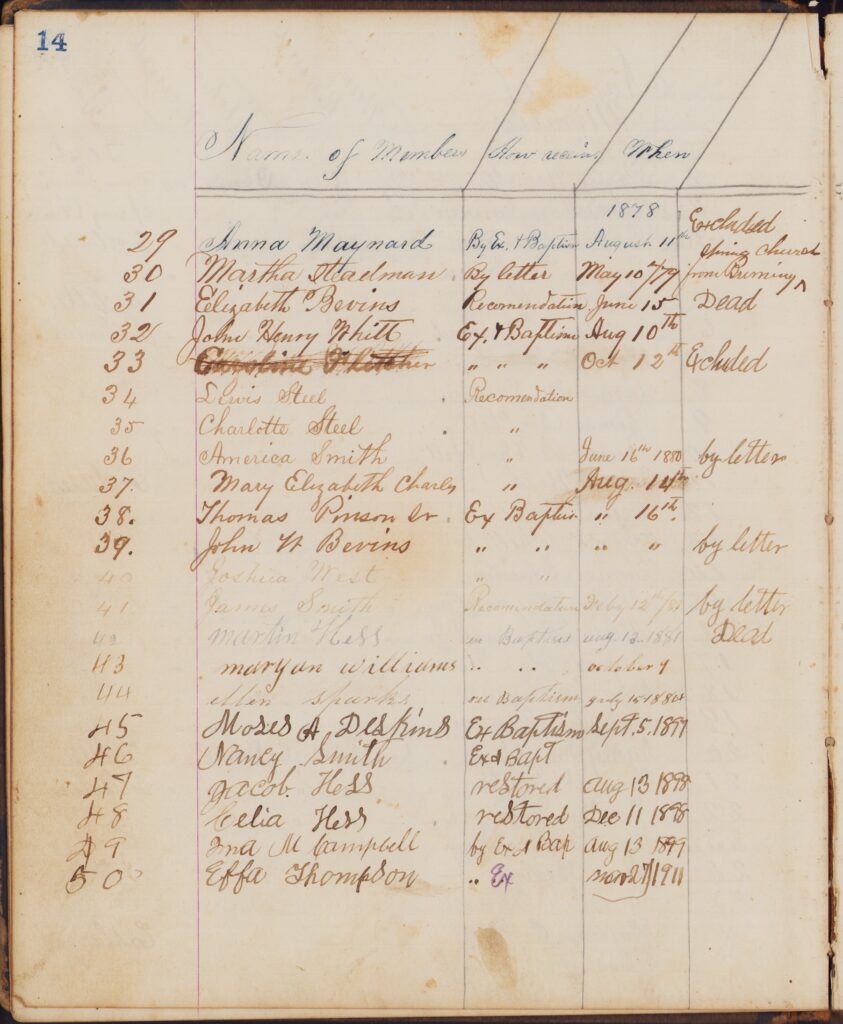 14
Name of Members How receivd When
1878
29 Anna Maynard By Ex. & Baptism August 11th Excluded
30 Martha Steadman. By letter May 10th/79 from Burning Spring Church
31 Elizabeth Bevins Recomendation June 15 Dead
32 John Henry Whitt Ex. & Baptism Aug 10th
33 " " " Oct 12th Excluded
34 Lewis Steel Recomendation
35 Charlotte Steel "
36 America Smith " June 16th 1880 by letter
37. Mary Elizabeth Charles " Aug. 14th
38. Thomas Pinson Sr. Ex Baptism " 16th.
39. John W Bevins " " " " by letter
40 Joshua West " "
41 James Smith Recomendation Feby 12th/81 by letter
42 martin Hess ex Baptism aug. 13. 1881 Dead
43 maryan williams " " october 9
44 ellen sparks Baptism
45 Moses A Deskins Ex Baptism Sept. 5. 1897
46 Nancy Smith Ex & Bapt
47 Jacob. Hess restored aug 13 1898
48 Celia Hess restored Dec 11 1898
49 Ima M Campbell by Ex & Bap aug 13 1899
50 Effa Thompson " Ex nov 27/1911